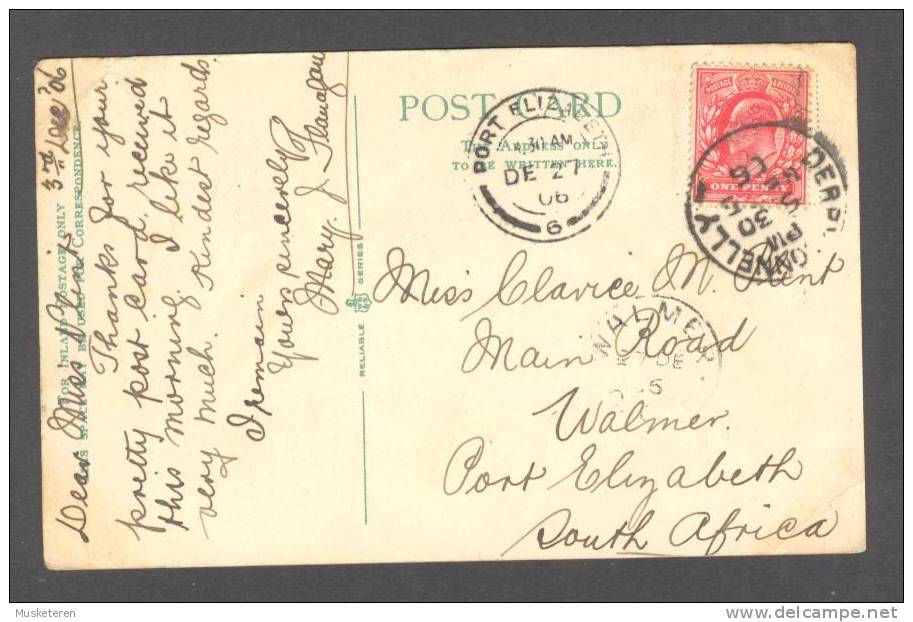 POST CARD
THE ADDRESS ONLY
TO BE WRITTEN HERE.
FOR INLAND POSTAGE ONLY
THIS SPACE MAY BE USED FOR CORRESPONDENCE.
3rd Dec '06
Dear Miss
Thanks for your
pretty post card, received
this morning. I like it
very much. Kindest regards.
I remain
Yours sincerely
Mary J. Flanagan
RELIABLE SERIES
Miss Clarice M.
Main Road
Walmer.
Port Elizabeth
South Africa
PORT ELIZABETH
DE 27
06
6
WALMER
POSTAGE
ONE PENNY
DERRYGONNELLY
Musketeren
delcampe.net